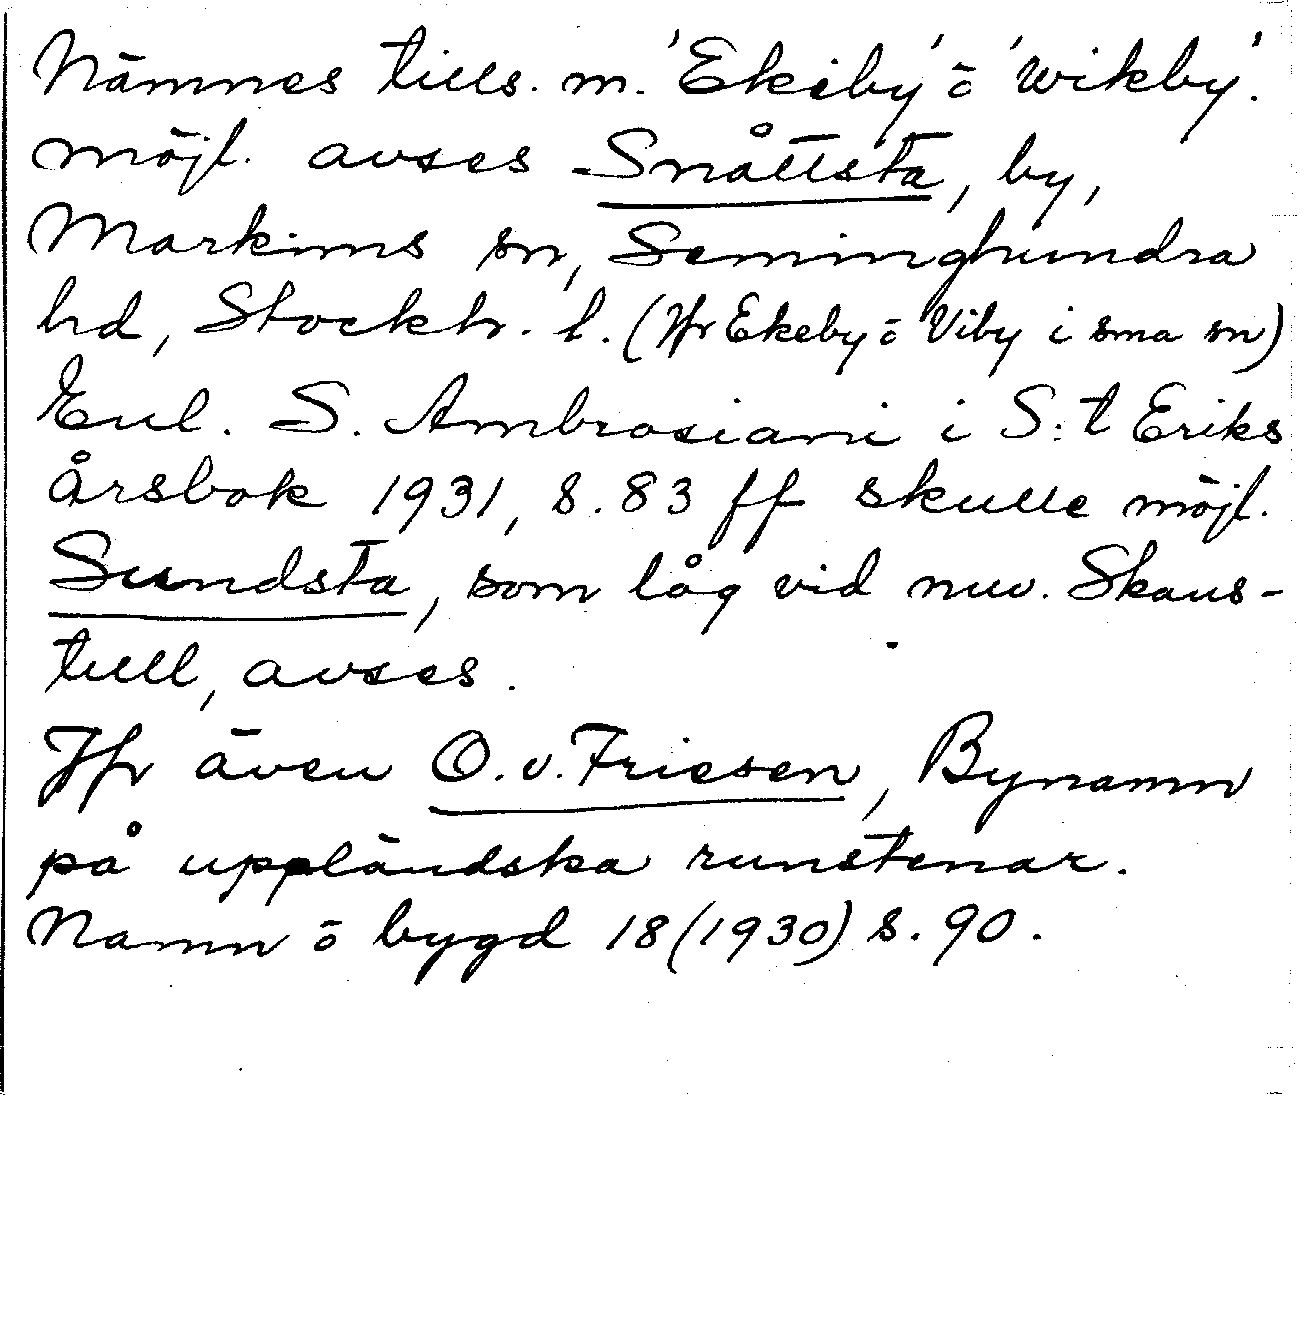 Nämnes tills. m. 'Ekeby' o 'Wikby'.
Möjl. avses Snåttsta, by,
Markims sn, Seminghundra
hd, Stockh. l. (Jfr Ekeby o Viby i sma sn)
Enl. S. Ambrosiani i S:t Eriks
Årsbok 1931, s. 83 ff skulle möjl.
Sundsta, som låg vid nuv. Skans-
tull, avses.
Jfr även O.v.Friesen, Bynamn
på uppländska runstenar.
Namn o bygd 18 (1930) s. 90.